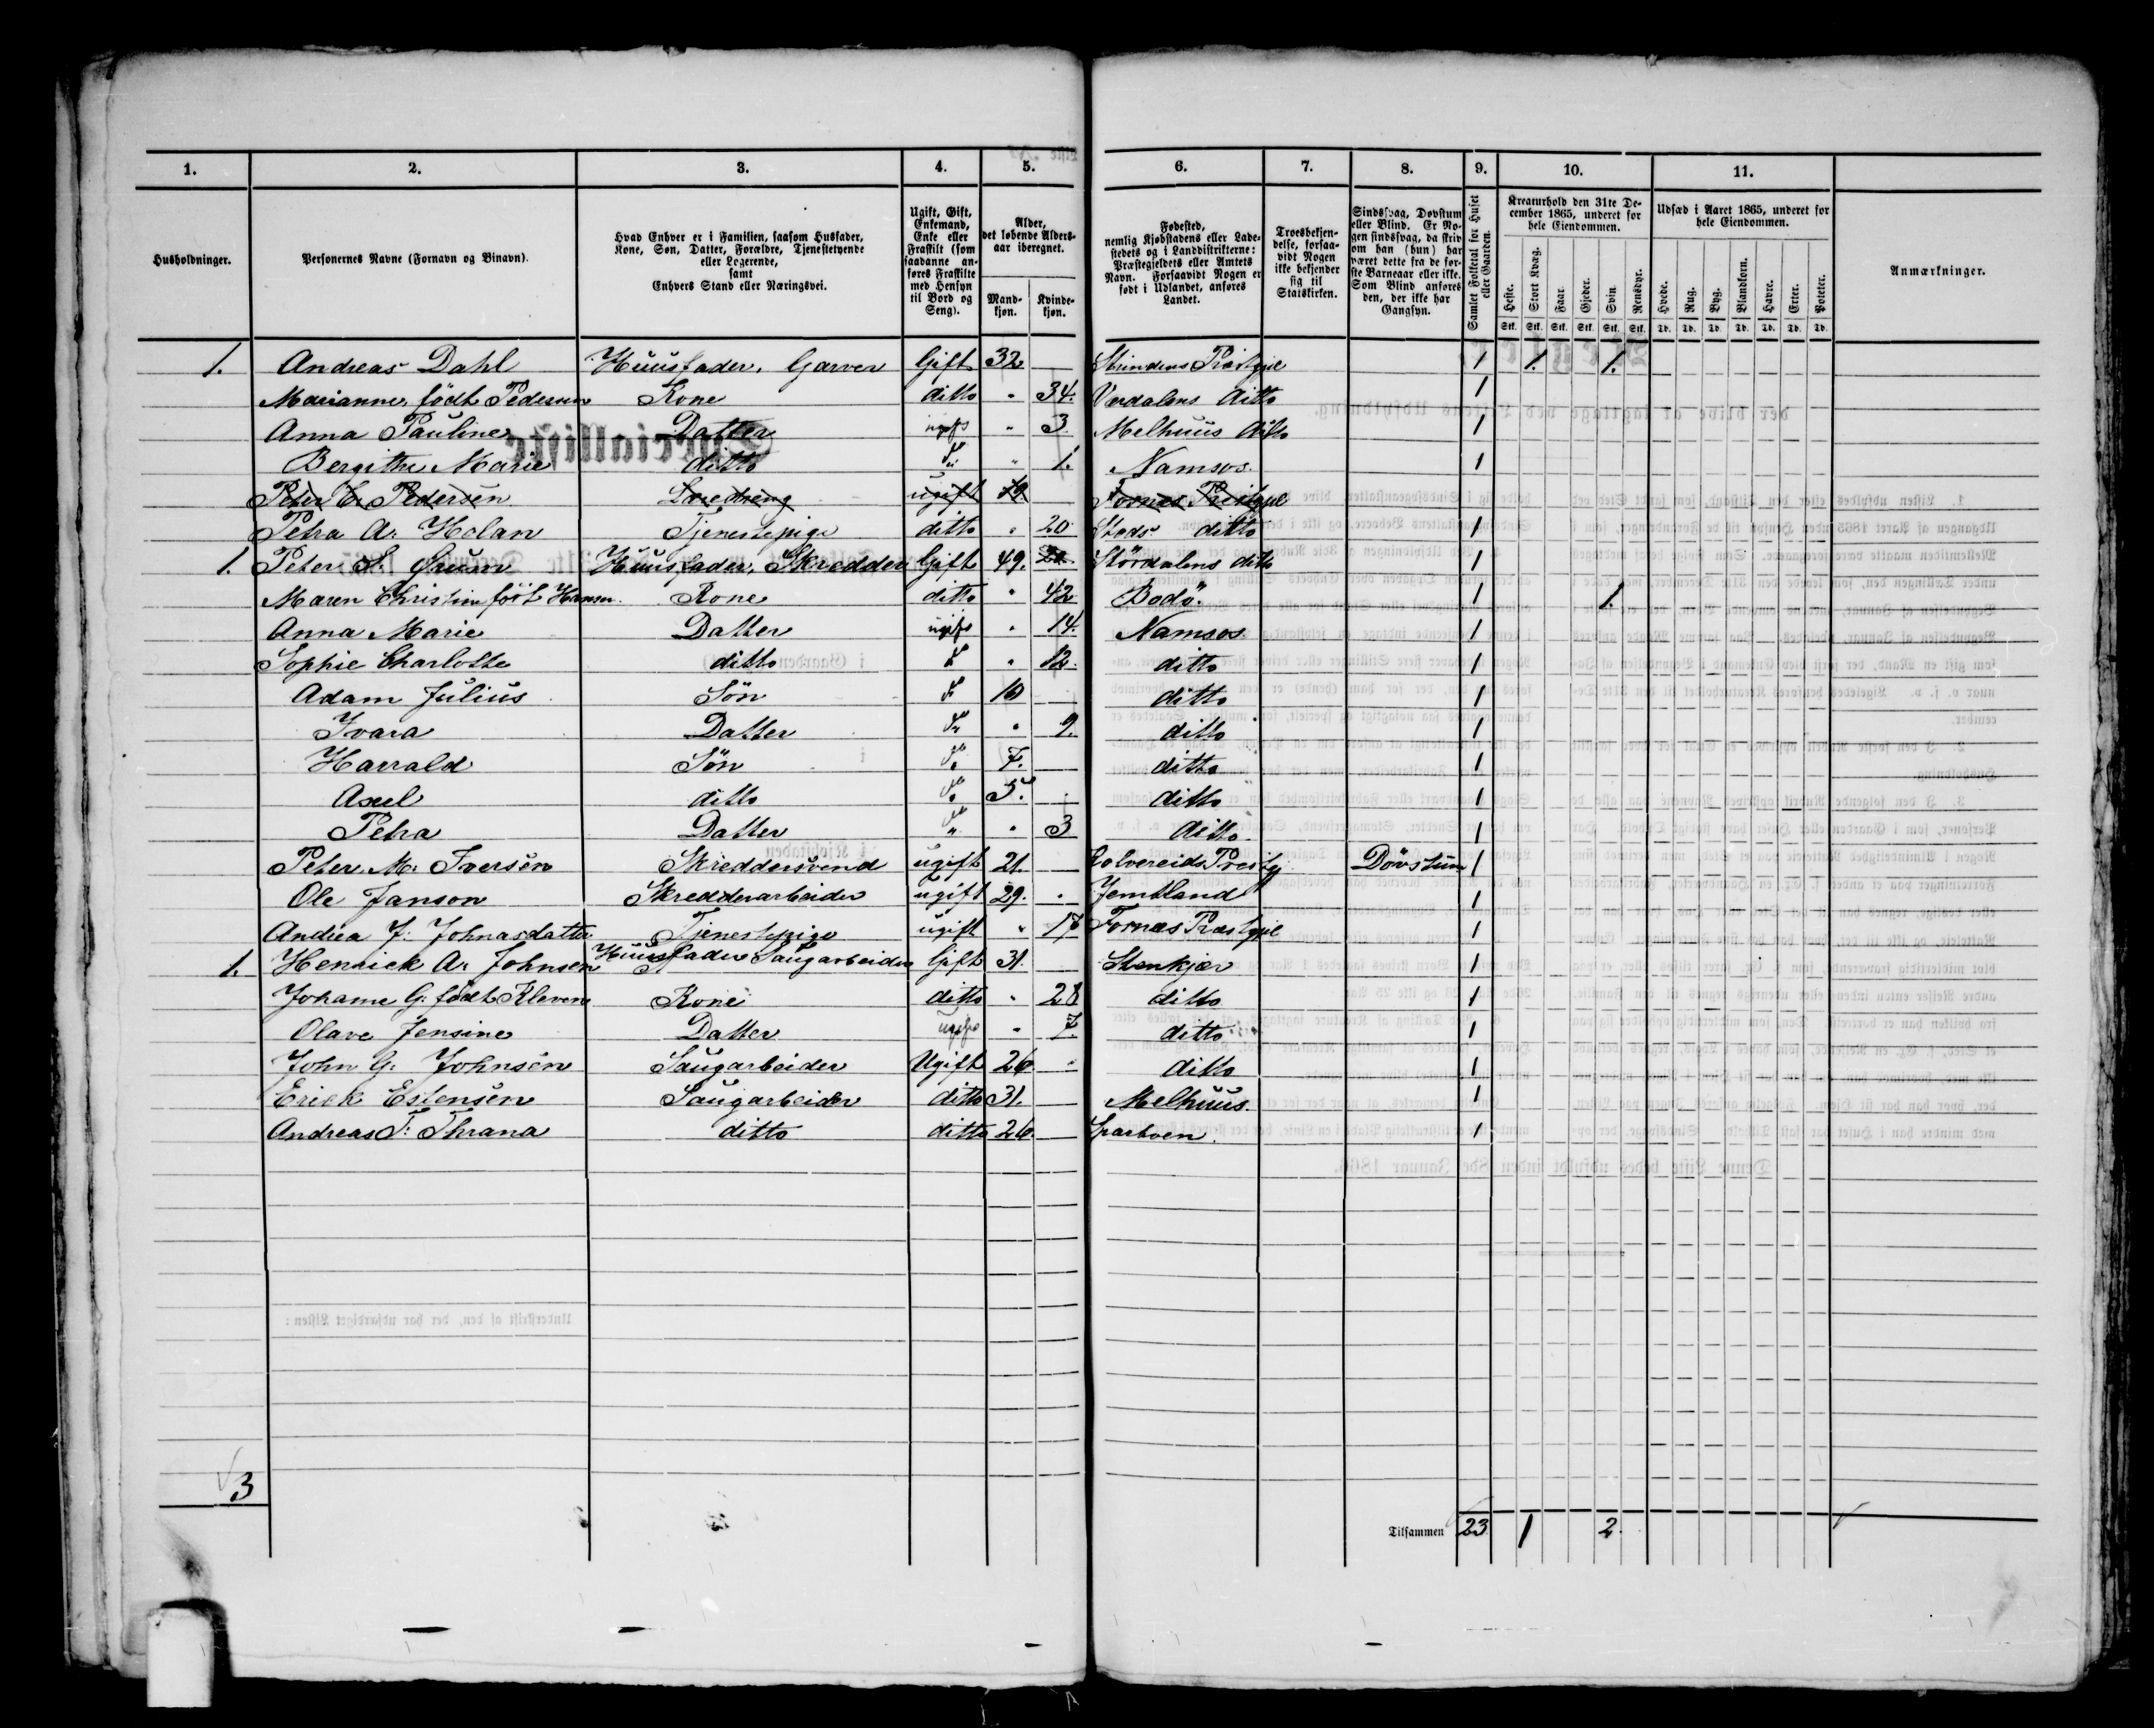 1. 2. 3. 4. 5. 6. 7. 8. 9. 10. 11.
Husholdninger.
Personernes Navne (Fornavn og Binavn).
Hvad Enhver er i Familien, saasom Husfader,
Kone, Søn, Datter, Forældre, Tjenestetyende
eller Logerende,
samt
Enhvers Stand eller Næringsvei.
Ugift, Gift,
Enkemand,
Enke eller
Fraskilt (som
saadanne an-
føres Fraskilte
med Hensyn
til Bord og
Seng).
Alder,
det løbende Alders-
aar iberegnet.
Mand-
kjøn.
Kvinde-
kjøn.
Fødested,
nemlig Kjøbstadens eller Lade-
stedets og i Landdistrikterne:
Præstegjeldets eller Amtets
Navn. Forsaavidt Nogen er
født i Udlandet, anføres
Landet.
Troesbekjen-
delse, forsaa-
vidt Nogen
ikke bekjender
sig til
Statskirken.
Sindssvag, Døvstum
eller Blind. Er No-
gen sindssvag, da skriv
om han (hun) har
været dette fra de før-
ste Barneaar eller ikke.
Som Blind anføres
den, der ikke har
Gangsyn.
Samlet Folketal for Huset
eller Gaarden.
Kreaturhold den 31te De-
cember 1865, underet for
hele Eiendommen.
Heste. Stort Kvæg. Faar. Gjeder. Svin. Rensdyr.
Stk. Stk. Stk. Stk. Stk. Stk.
Udsæd i Aaret 1865, underet for
hele Eiendommen.
Hvede. Rug. Byg. Blandkorn. Havre. Erter. Poteter.
Td. Td. Td. Td. Td. Td. Td.
Anmærkninger.
1. Andreas Dahl Huusfader, Garver Gift 32 Strindens Præstgjel 1 1. 1.
Marianne, født Pedersen Kone ditto " 34. Verdalens ditto 1
Anna Pauline Datter ugift " 3 Melhuus ditto 1
Bergithe Marie ditto " 1. Namsos. 1
Peter C. Pedersen Læredreng ugift 19 Fornæs Præstgjel
Petra A. Holan Tjenestepige ditto " 20 Stods ditto 1
1. Peter S. Huusfader, Skredder Gift 49. Stördalens ditto 1
Maren Christine fört Hansen. Kone ditto " 42 Bodö. 1 1.
Anna Marie Datter ugift " 14. Namsos 1
Sophie Charlotte ditto " 12. ditto 1
Adam Julius Sön 10 ditto 1
Ivara Datter " 9. ditto 1
Harrald Sön 7. ditto 1
Axel ditto 5. ditto 1
Petra Datter " 3 ditto 1
Peter M. Iversen Skreddersvend ugift 21. Kolvereids Prestgj Dövstum 1
Ole Janson Skredderarbeider ugift 29. Jemtland 1
Andrea J. Johnasdatter Tjenestepige ugift " 17 Fornæs Præstgjel 1
1. Henrick A. Johnsen Huusfader Saugarbeider Gift 31. Stenkjær 1
Johanne G. født Kleven Kone ditto " 28 ditto 1
Olave Jensine Datter ugift " 7. ditto 1
John G. Johnsen Saugarbeider Ugift 26 ditto 1
Erick Estensen Saugarbeider ditto 31. Melhuus. 1
Andreas T. Thrana ditto ditto 26 Sparboen. 1
3
Tilsammen 23 1 2.